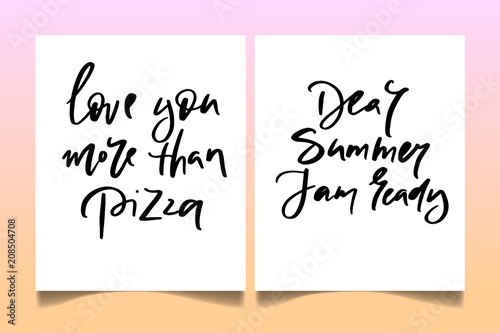 love you
more than
pizza
Dear
Summer
I am ready
208504708